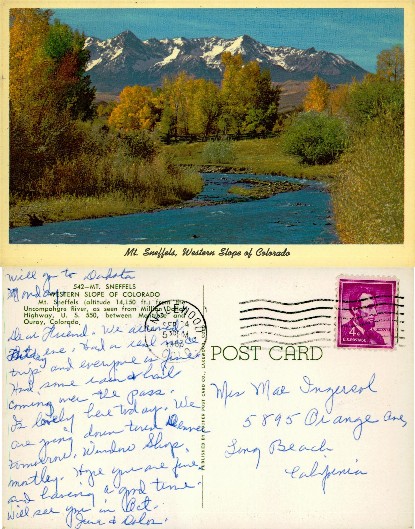 Mt. Sneffels, Western Slope of Colorado
Will go to Dakota
Monday
S42—MT. SNEFFELS
WESTERN SLOPE OF COLORADO
Mt. Sneffels (altitude 14,150 ft.) from the
Uncompahgre River, as seen from Million Dollar
Highway, U. S. 550, between Montrose and
Ouray, Colorado.
Dear Friend. We
Had a real nice
trip and everyone is fine
Had some rain & hail
coming over the Pass.
Is lovely here today. We
are going down town Denver
tomorrow. Window Shop,
mostly. Hope you are fine
and having a good time.
Will see you in Oct.
POST CARD
4¢
U.S. POSTAGE
Mrs Mae Ingersol
5895 Orange Ave,
Long Beach
California